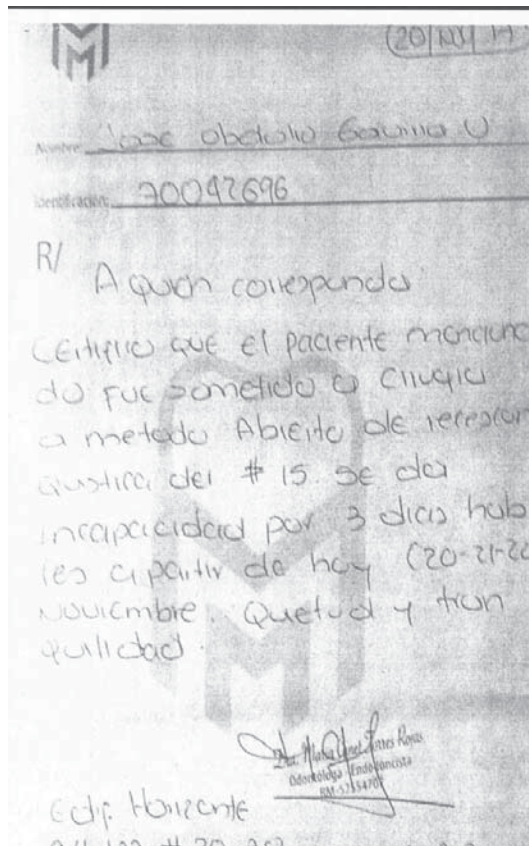 (20/Nov/19
Nombre: Jose Obdulio Gaviria U
Identificación: 70042696
R/ A quien corresponda
Certifico que el paciente menciona
do fue sometido a cirugia
a metodo Abierto de reseccion
del # 15. se da
incapacidad por 3 dias habi
les a partir de hoy (20-21-22
Noviembre. Quietud y tran
quilidad.
Dra. Torres Rojas
Odontóloga Endodoncista
Edif. Horizonte